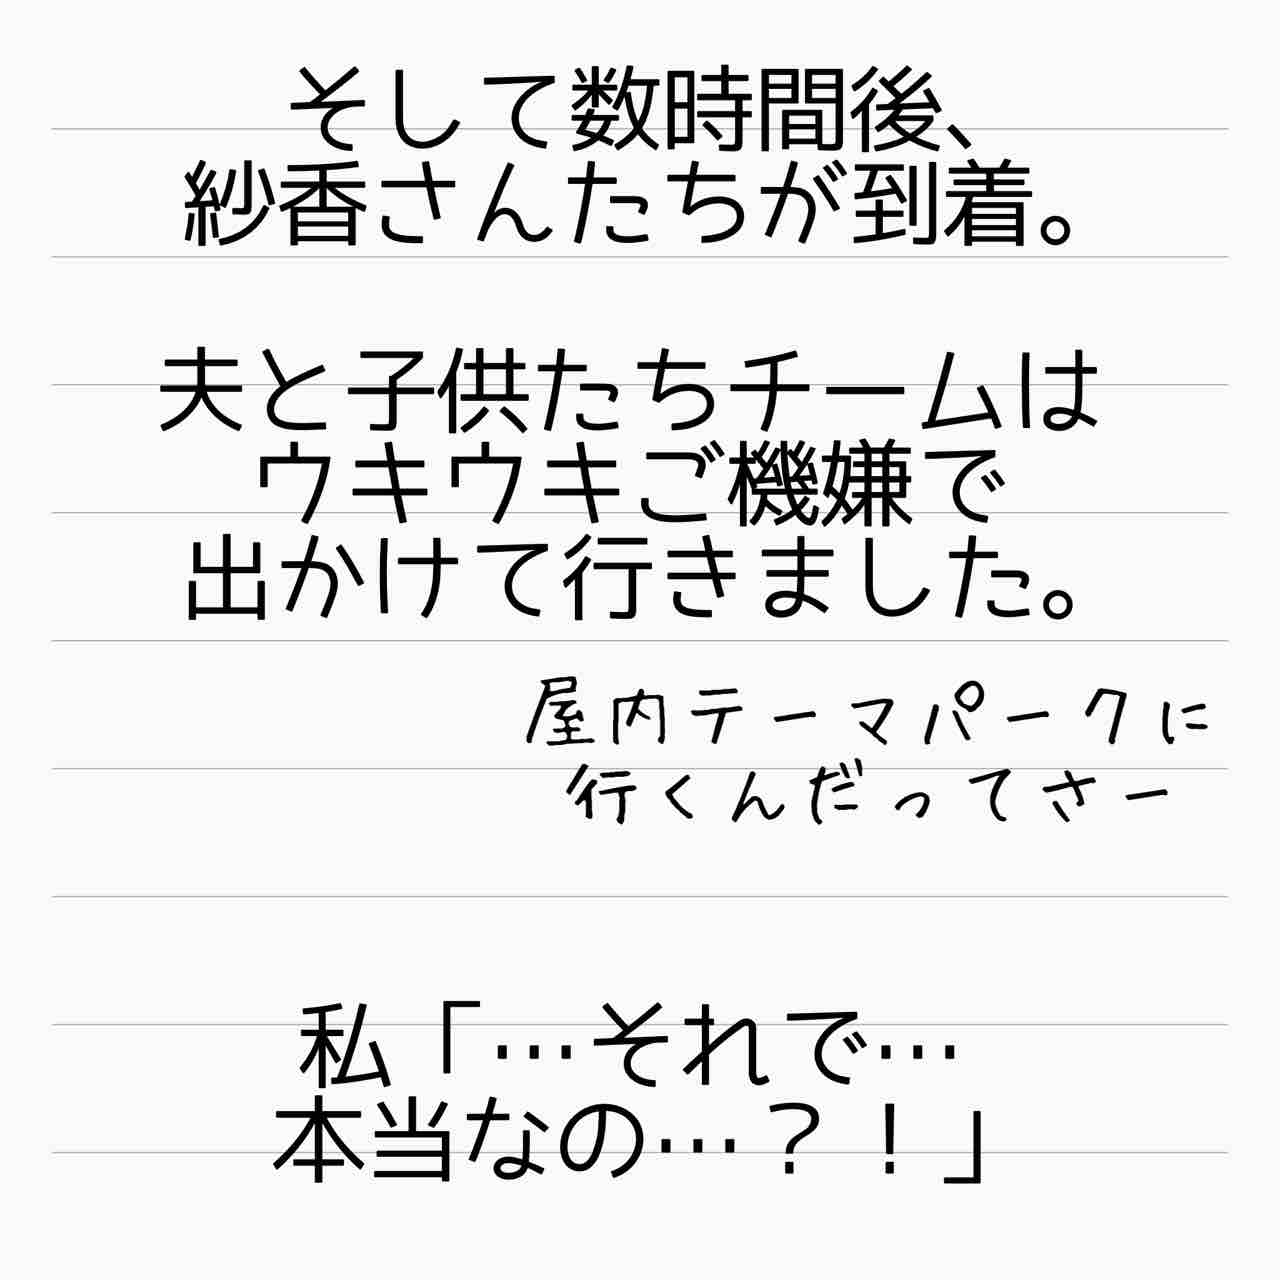 そして数時間後、
紗香さんたちが到着。
夫と子供たちチームは
ウキウキご機嫌で
出かけて行きました。
屋内テーマパークに
行くんだってさー
私「…それで…
本当なの…？！」